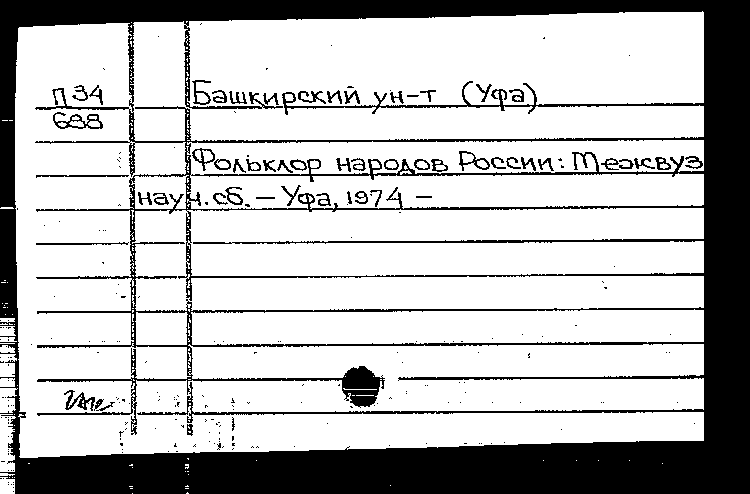 П34 Башкирский ун-т (Уфа)
688
Фольклор народов России: Межвуз
науч. сб. — Уфа, 1974 —